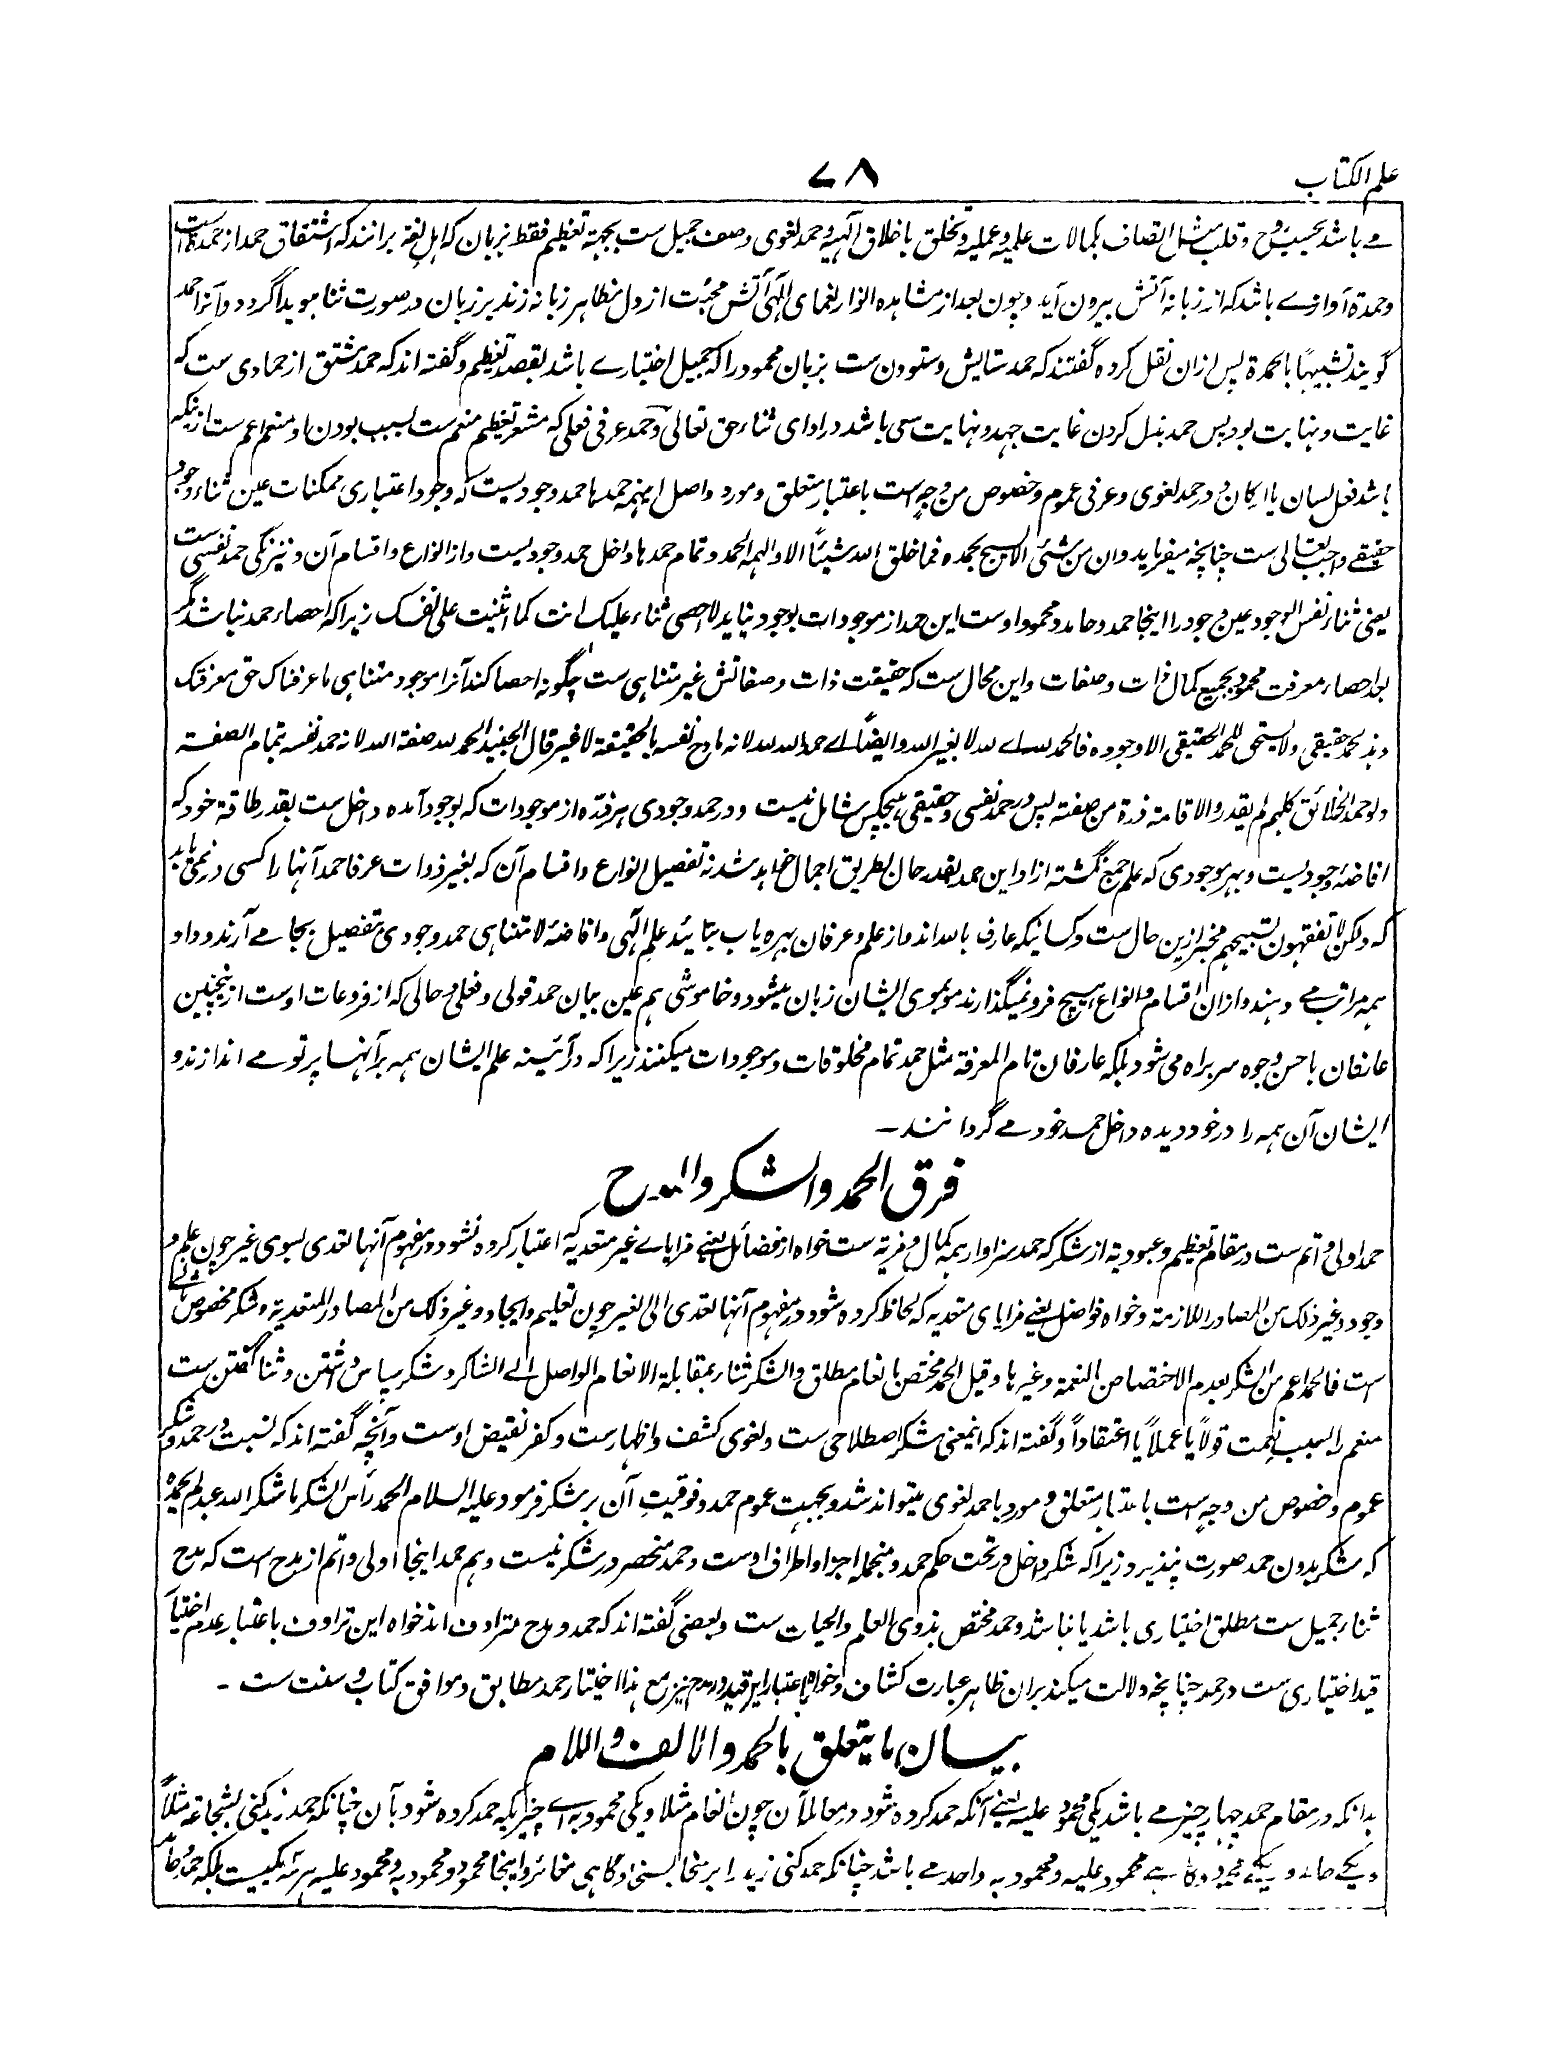 علم الکتاب
۷۸
مے باشد بحسب روح و قلب مثل اتصاف بکمالات علمیه و عملیه و تخلق باخلاق آلهیه و حمد لغوی وصف جمیل ست بجهته تعظیم فقط بزبان که اهل لغة برانند که اشتقاق حمد از حمدة است
و حمدة آوازے باشد که از زبانه آتش بیرون آید و چون بعد از مشاهده انوار نعمای الٓهی آتش محبّت از دل مظاهر زبانه زند بر زبان در صورت ثنا هویدا گردد و آنرا حمد
گویند تشبیهاً بالحمدة پس ازان نقل کرده گفتند که حمد ستایش و ستودن ست بزبان محمود را که جمیل اختیارے باشد بقصد تعظیم و گفته اند که حمد مشتق از حمادی ست که
غایت و نهایت بود پس حمد بذل کردن غایت جهد و نهایت سعی باشد در ادای ثناء حق تعالیٰ و حمد عرفی فعلی که مشعر تعظیم منعم ست بسبب بودن او منعم اعم ست ازینکه
باشد فعل لسان یا ارکان و در حمد لغوی و عرفی عموم و خصوص من وجه است باعتبار متعلق و مورد و اصل اینهمه حمدها حمد وجود یست که وجود اعتباری ممکنات عین ثناء وجود
حقیقے واجب تعالی ست چنانچه میفرماید و ان من شئ الا یسبح بحمده فما خلق الله شیئاً الا و الهمه الحمد و تمام حمدها داخل حمد وجودیست و از انواع و اقسام آن و نیز یکی حمد نفسی ست
یعنی ثناء نفس الوجود عین وجود را اینجا حمد و حامد و محمود اوست این حمد از موجودات بوجود نیاید لا احصی ثناء علیک انت کما اثنیت علی نفسک زیرا که احصاء حمد نباشد مگر
بعد احصاء معرفت محمود بجمیع کمال ذات و صفات و این محال ست که حقیقت ذات و صفاتش غیر متناهی ست چگونه احصا کند آنرا موجود متناهی ما عرفناک حق معرفتک
و یذ الحمد حقیقی و لا یستحق للحمد الحقیقی الا وجوده فالحمد لله اے لله لا بغیر الله و ایضاً اے حمد الله لله لانه مادح نفسه بالحقیقة لا غیر قال الجنید الحمد لله صفة الله لانه حمد نفسه بتمام الصفة
و لو حمد الخلائق کلهم لم یقدروا لاقامة ذرة من صفته پس در حمد نفسی و حقیقی هیچکس شامل نیست و در حمد وجودی هر ذرّه از موجودات که بوجود آمده داخل ست بقدر طاقة خود که
افاضهٔ وجود یست و بهر موجودی که علم جمع نگشته ازو این حمد بقدر حال بطریق اجمال خواهد شد نه تفصیل انواع و اقسام آن که بغیر ذوات عرفا حمد آنها را کسی در نمی یابد
که و لکن لا تفقهون تسبیحهم مخبر ازین حال ست و کسانیکه عارف بالله اند و از علم و عرفان بهره یاب بتائید علم الٓهی و افاضهٔ لامتناهی حمد وجودی بتفصیل بجا مے آرند و داد
همه مراتب مے دهند و ازان اقسام و انواع هیچ فرو نمیگذارند مو بموی ایشان زبان میشود و خاموشی هم عین بیان حمد قولی و فعلی و حالی که از فروعات اوست از اینچنین
عارفان باحسن وجوه سربراه می شود بلکه عارفان تام المعرفة مثل حمد تمام مخلوقات و موجودات میکنند زیرا که در آئینه علم ایشان همه بر آنها پرتو مے اندازند و
ایشان آن همه را در خود دیده داخل حمد خود مے گردانند ۔
فرق الحمد و الشکر و المدح
حمد اولی و اتم ست در مقام تعظیم و عبودیة از شکر که حمد سزاوار همه کمال و مزیة ست خواه از فضائل یعنے مزایاے غیر متعدیه که اعتبار کرده نشود در مفهوم آنها تعدی بسوی غیر چون علم و
وجود و غیر ذلک من المصادر اللازمة و خواه فواضل یعنے مزایای متعدیه که لحاظ کرده شود در مفهوم آنها تعدی الی الغیر چون تعلیم و ایجاد و غیر ذلک من المصادر المتعدیة و شکر مخصوص بثانے
ست فالحمد اعم من الشکر بعدم الاختصاص النعمة و غیرها و قیل الحمد مختص بانعام مطلق و الشکر ثناء بمقابلة الانعام الواصل الے الشاکر و شکر سپاس داشتن و ثنا گفتن ست
منعم را بسبب نعمت قولاً یا عملاً یا اعتقاداً و گفته اند که اینمعنی شکر اصطلاحی ست و لغوی کشف و اظهار ست و کفر نقیض اوست و آنچه گفته اند که نسبت در حمد و شکر
عموم و خصوص من وجه است باعتبار متعلق و مورد با حمد لغوی میتواند شد و بجهت عموم حمد و فوقیت آن بر شکر فرمود علیه السلام الحمد رأس الشکر ما شکر الله عبد لم یحمده
که شکر بدون حمد صورت نپذیرد زیرا که شکر داخل در تحت حکم حمد و منجمله اجزا و اطراف اوست و حمد منحصر در شکر نیست و هم حمد اینجا اولی و اتم از مدح است که مدح
ثناء جمیل ست مطلق اختیاری باشد یا نباشد و حمد مختص بذوی العلم و الحیات ست و بعضی گفته اند که حمد و مدح مترادف اند خواه این ترادف باعتبار عدم اختیار
قید اختیاری ست در حمد چنانچه دلالت میکند بران ظاهر عبارت کشاف و خواه باعتبار این قید در مدح نیز مع هذا اختیار حمد مطابق و موافق کتاب و سنت ست ۔
بیان ما یتعلق بالحمد و الالف و اللام
بدانکه در مقام حمد چهار چیز مے باشد یکی محمود علیه یعنے آنکه حمد کرده شود در معامله آن چون انعام مثلا و یکی محمود به اے چیزیکه حمد کرده شود بآن چنانکه حمد زید کنی بشجاعة مثلاً
و یکے حامد و یکے محمود و گاہے محمود علیه و محمود به واحد مے باشد چنانکه حمد کنی زید را بر سخا بسخا و گاهی مغائر و اینجا محمود و محمود به و محمود علیه هر سه یکیست بلکه حمد و حامد